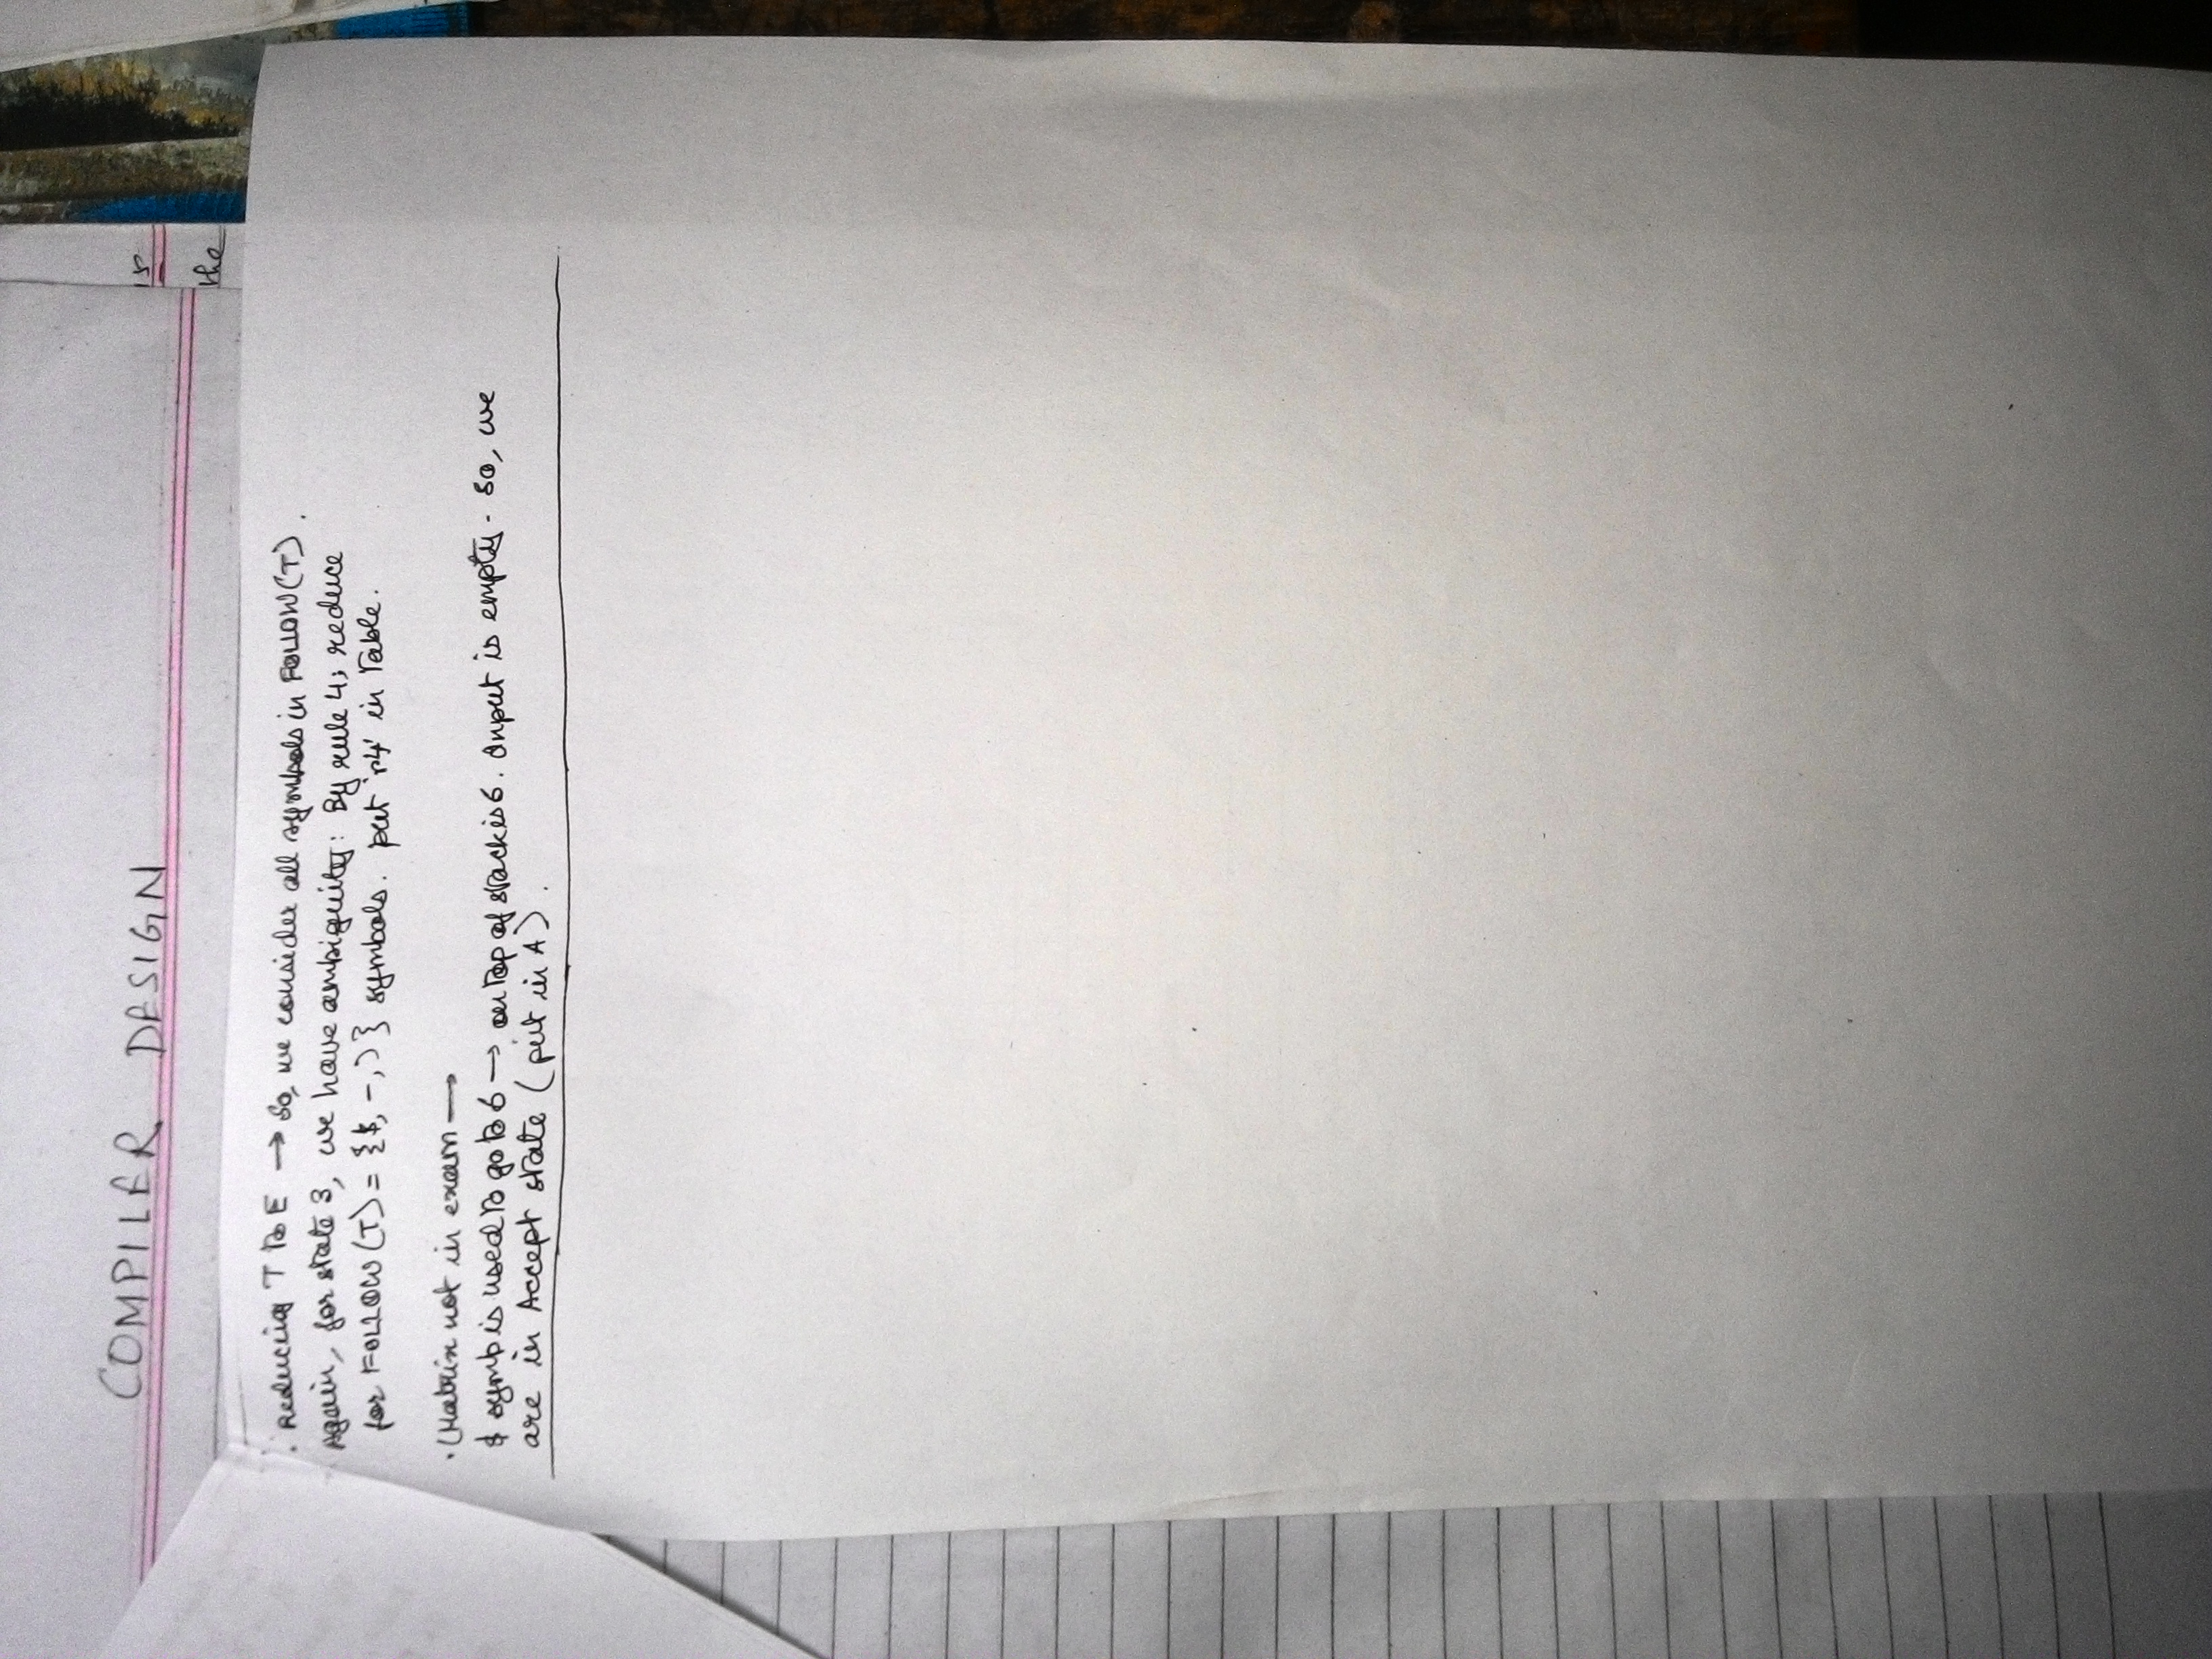 COMPILER DESIGN
is
the
. Reducing T to E → So, we consider all symbols in FOLLOW(T).
Again, for state 3, we have ambiguity: By rule 4, reduce
for FOLLOW(T) = {$, -, )} symbols. put 'r4' in Table.
. (Matrix not in exam →
$ symb is used to go to 6 → on top of stack is 6. Input is empty - so, we
are in Accept state (put in A).